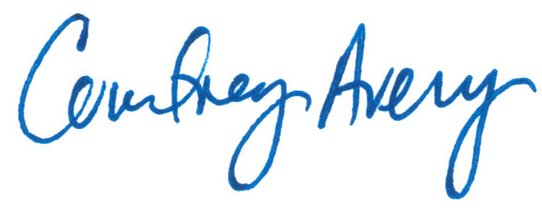 Courtney Avery